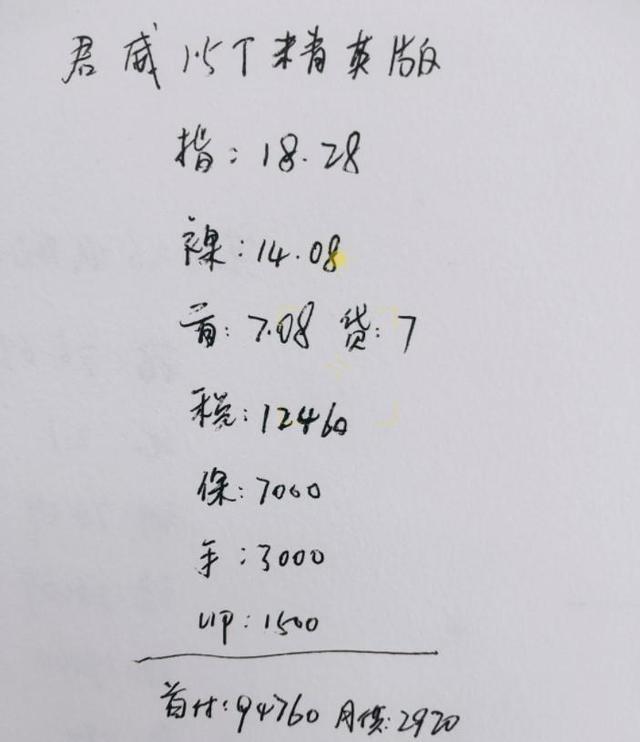 君威15T精英版
指：18.28
裸：14.08
首：7.08 贷：7
税：12460
保：7000
手：3000
VIP：1500
首付：94760 月供：2920